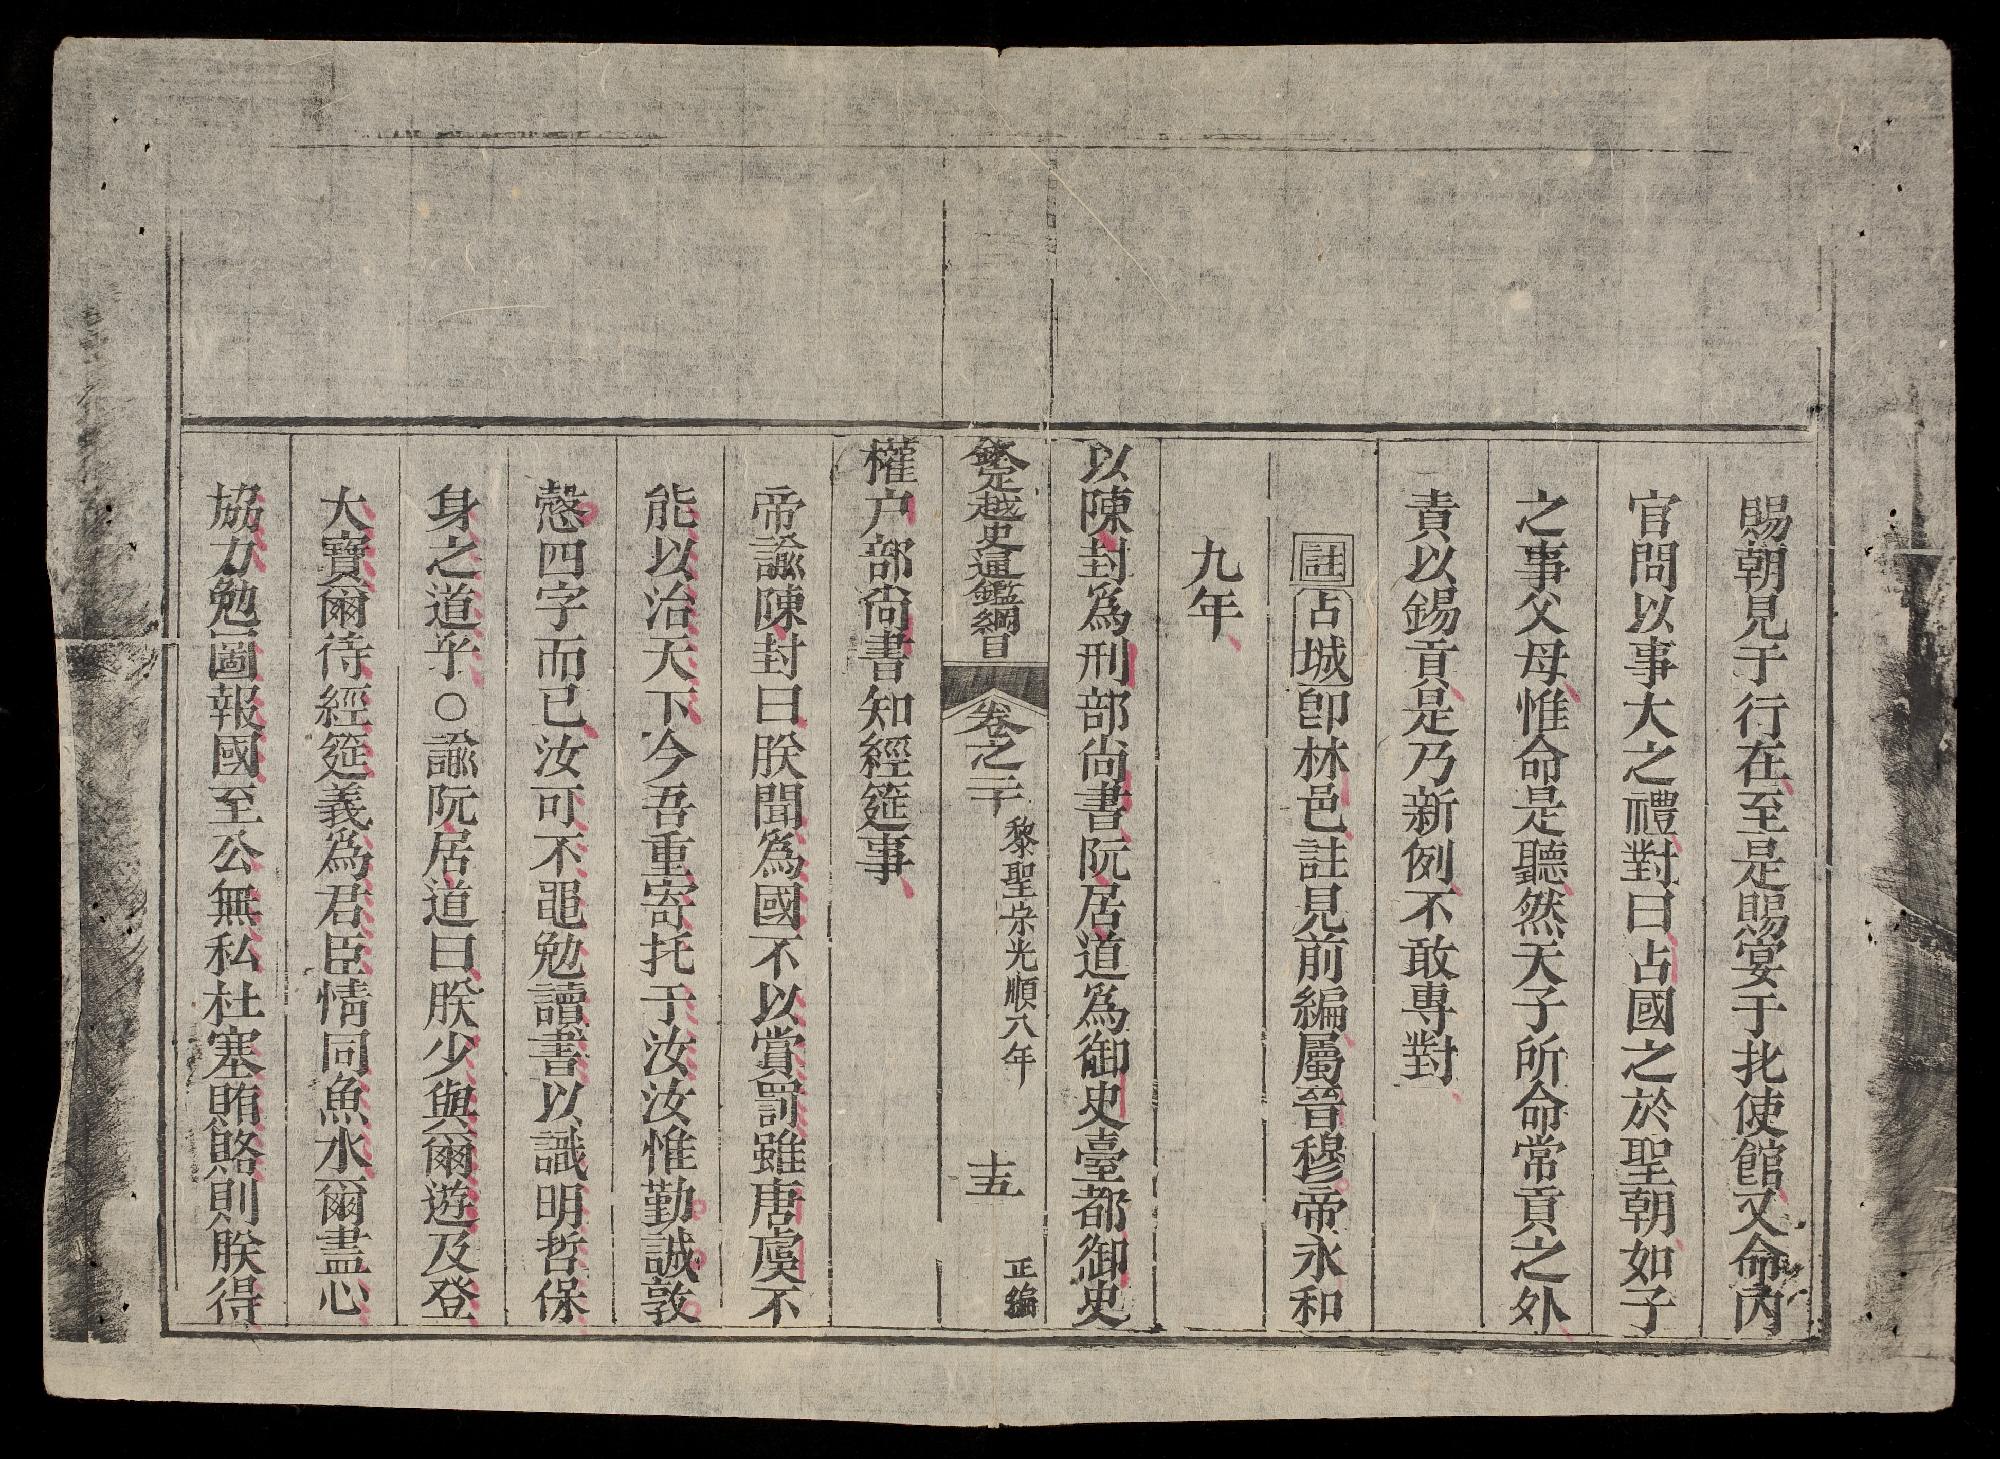 賜朝見于行在至是賜宴于北使館又命內
官問以事大之禮對曰占國之於聖朝如子
之事父母惟命是聽然天子所命常貢之外
責以錫貢是乃新例不敢專對
註占城卽林邑註見前編屬晉穆帝永和
九年
以陳封爲刑部尙書阮居道爲御史臺都御史
欽定越史通鑑綱目 卷之二十 黎聖宗光順八年 十五 正編
權户部尙書知經筵事
帝諭陳封曰朕聞爲國不以賞罰雖唐虞不
能以治天下今吾重寄托于汝汝惟勤誠敦
慤四字而已汝可不黽勉讀書以識明哲保
身之道乎○諭阮居道曰朕少與爾遊及登
大寶爾待經筵義爲君臣情同魚水爾盡心
協力勉圖報國至公無私杜塞賄賂則朕得